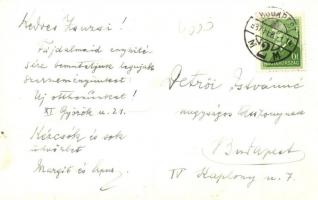 Kedves Zsuzsi!
Fájdalmaid enyhíté-
sére bemutatjuk legujabb
szerzeményünket!
Új otthonunkat!
XI Györök u. 21.
Kézcsók és sok
üdvözlet
Margit és Apus.
Detrői Istvánné
nagyságos asszonynak
Budapest
IV Kaplony u. 7.